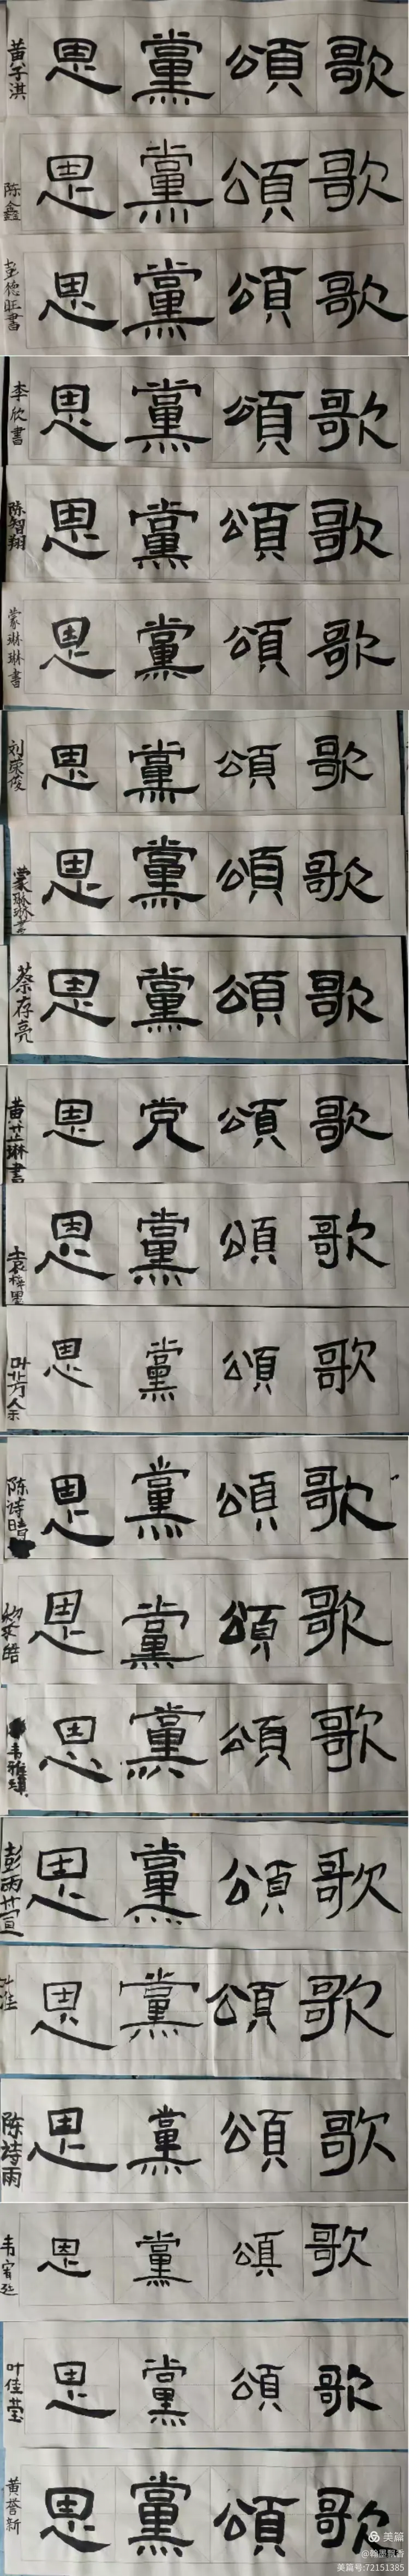 歌頌黨恩
黄子淇
歌頌黨恩
陈鑫
歌頌黨恩
彭德旺書
歌頌黨恩
李欣書
歌頌黨恩
陈智翔
歌頌黨恩
蒙琳琳書
歌頌黨恩
刘荣俊
歌頌黨恩
蒙琳琳書
歌頌黨恩
蔡存亮
歌頌党恩
黄芷琳書
歌頌黨恩
歌頌黨恩
歌頌黨恩
陈诗晴
歌頌黨恩
歌頌黨恩
歌頌黨恩
歌頌黨恩
歌頌黨恩
陈诗雨
歌頌黨恩
歌頌黨恩
叶佳莹
歌頌黨恩
黄誉新
美篇
@翰墨飘香
美篇号:72151385